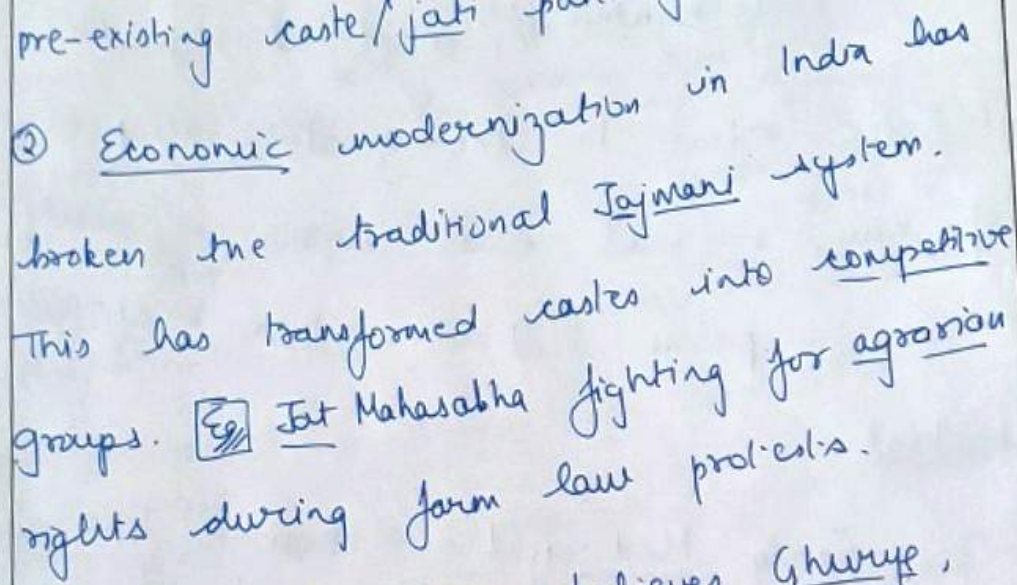 pre-existing caste/jati
② Economic modernization in India has
broken the traditional Jajmani system.
This has transformed castes into competitive
groups. Eg Jat Mahasabha fighting for agrarian
rights during farm law protests.
Ghurye,